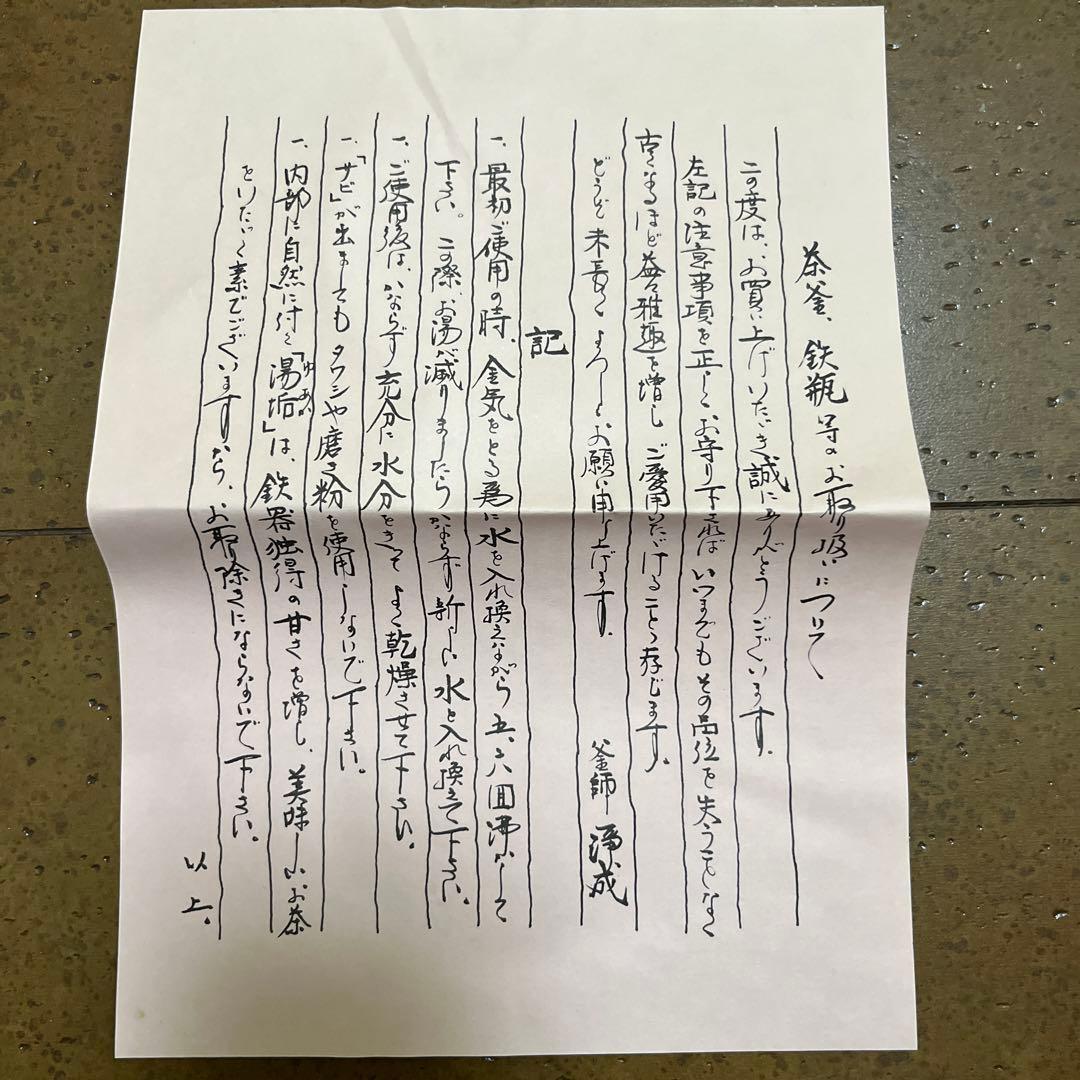 茶釜、鉄瓶等のお取り扱いについて
この度は、お買い上げいただき誠にありがとうございます。
左記の注意事項を正しくお守り下さればいつまでもその品位を失うことなく
古くなるほど益々雅趣を増し、ご愛用いただけることゝ存じます。
どうぞ末長くよろしくお願い申し上げます。
釜師 浄成
記
一、最初ご使用の時、金気をとる為に水を入れ換えながら五、六回沸かして
下さい。この際、お湯が減りましたらかならず新しい水と入れ換えて下さい。
一、ご使用後は、かならず充分に水分をきってよく乾燥させて下さい。
一、「サビ」が出ましてもタワシや磨き粉を使用しないで下さい。
一、内部に自然に付く「湯垢」は、鉄器独得の甘さを増し、美味しいお茶
ゆあか
をいただく素でございますから、お取り除きにならないで下さい。
以上。